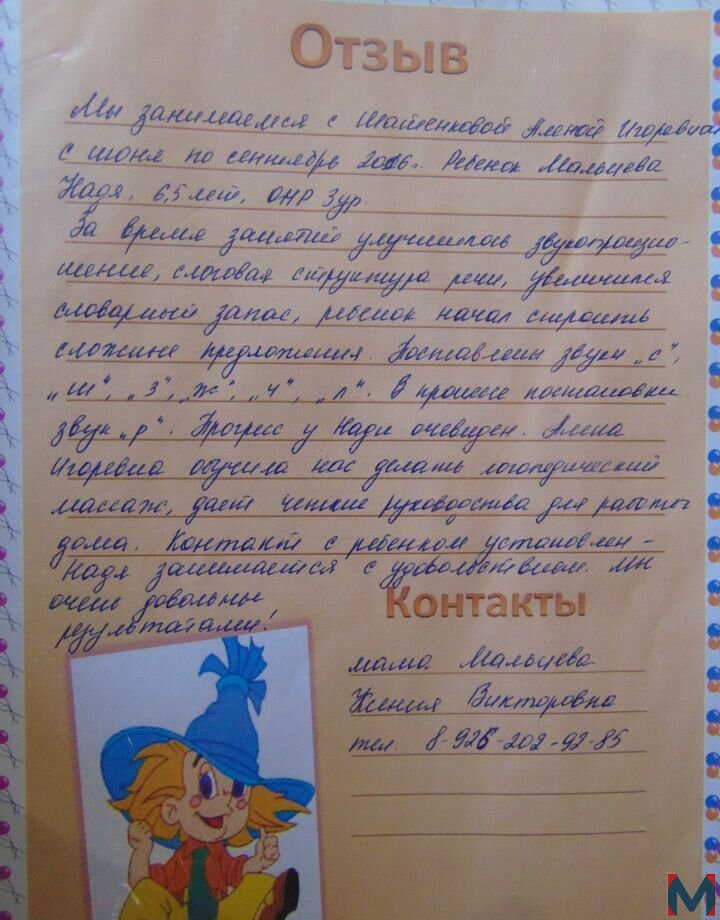 Отзыв
Мы занимаемся с Шатенковой Аленой Игоревной
с июня по сентябрь 2016г. Ребенок Мальцева
Надя, 6,5 лет, ОНР 3ур.
За время занятий улучшилось звукопроизно-
шение, слоговая структура речи, увеличился
словарный запас, ребенок начал строить
сложные предложения. Поставлены звуки „с",
„ш", „з", „ж", „ч", „л". В процессе постановки
звук „р". Прогресс у Нади очевиден. Алена
Игоревна обучила нас делать логопедический
массаж, дает четкие руководства для работы
дома. Контакт с ребенком установлен -
Надя занимается с удовольствием. Мы
очень довольны
результатами!
Контакты
мама Мальцева
Ксения Викторовна
тел. 8-926-202-92-85
М